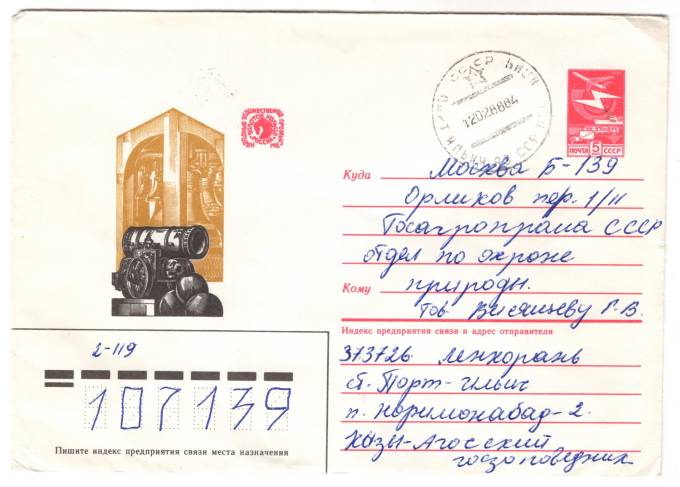 СССР
12028884
ПОЧТА 5 СССР
Куда Москва Б-139
Орликов пер. 1/11
Госагропрома СССР
отдел по охроне
Кому природы.
тов.
Индекс предприятия связи и адрес отправителя
373726 Ленкорань
ст. Порт-Ильич
п. Наримонабад-2.
Кызы-Агосский
госзаповедник
2-119
107139
Пишите индекс предприятия связи места назначения